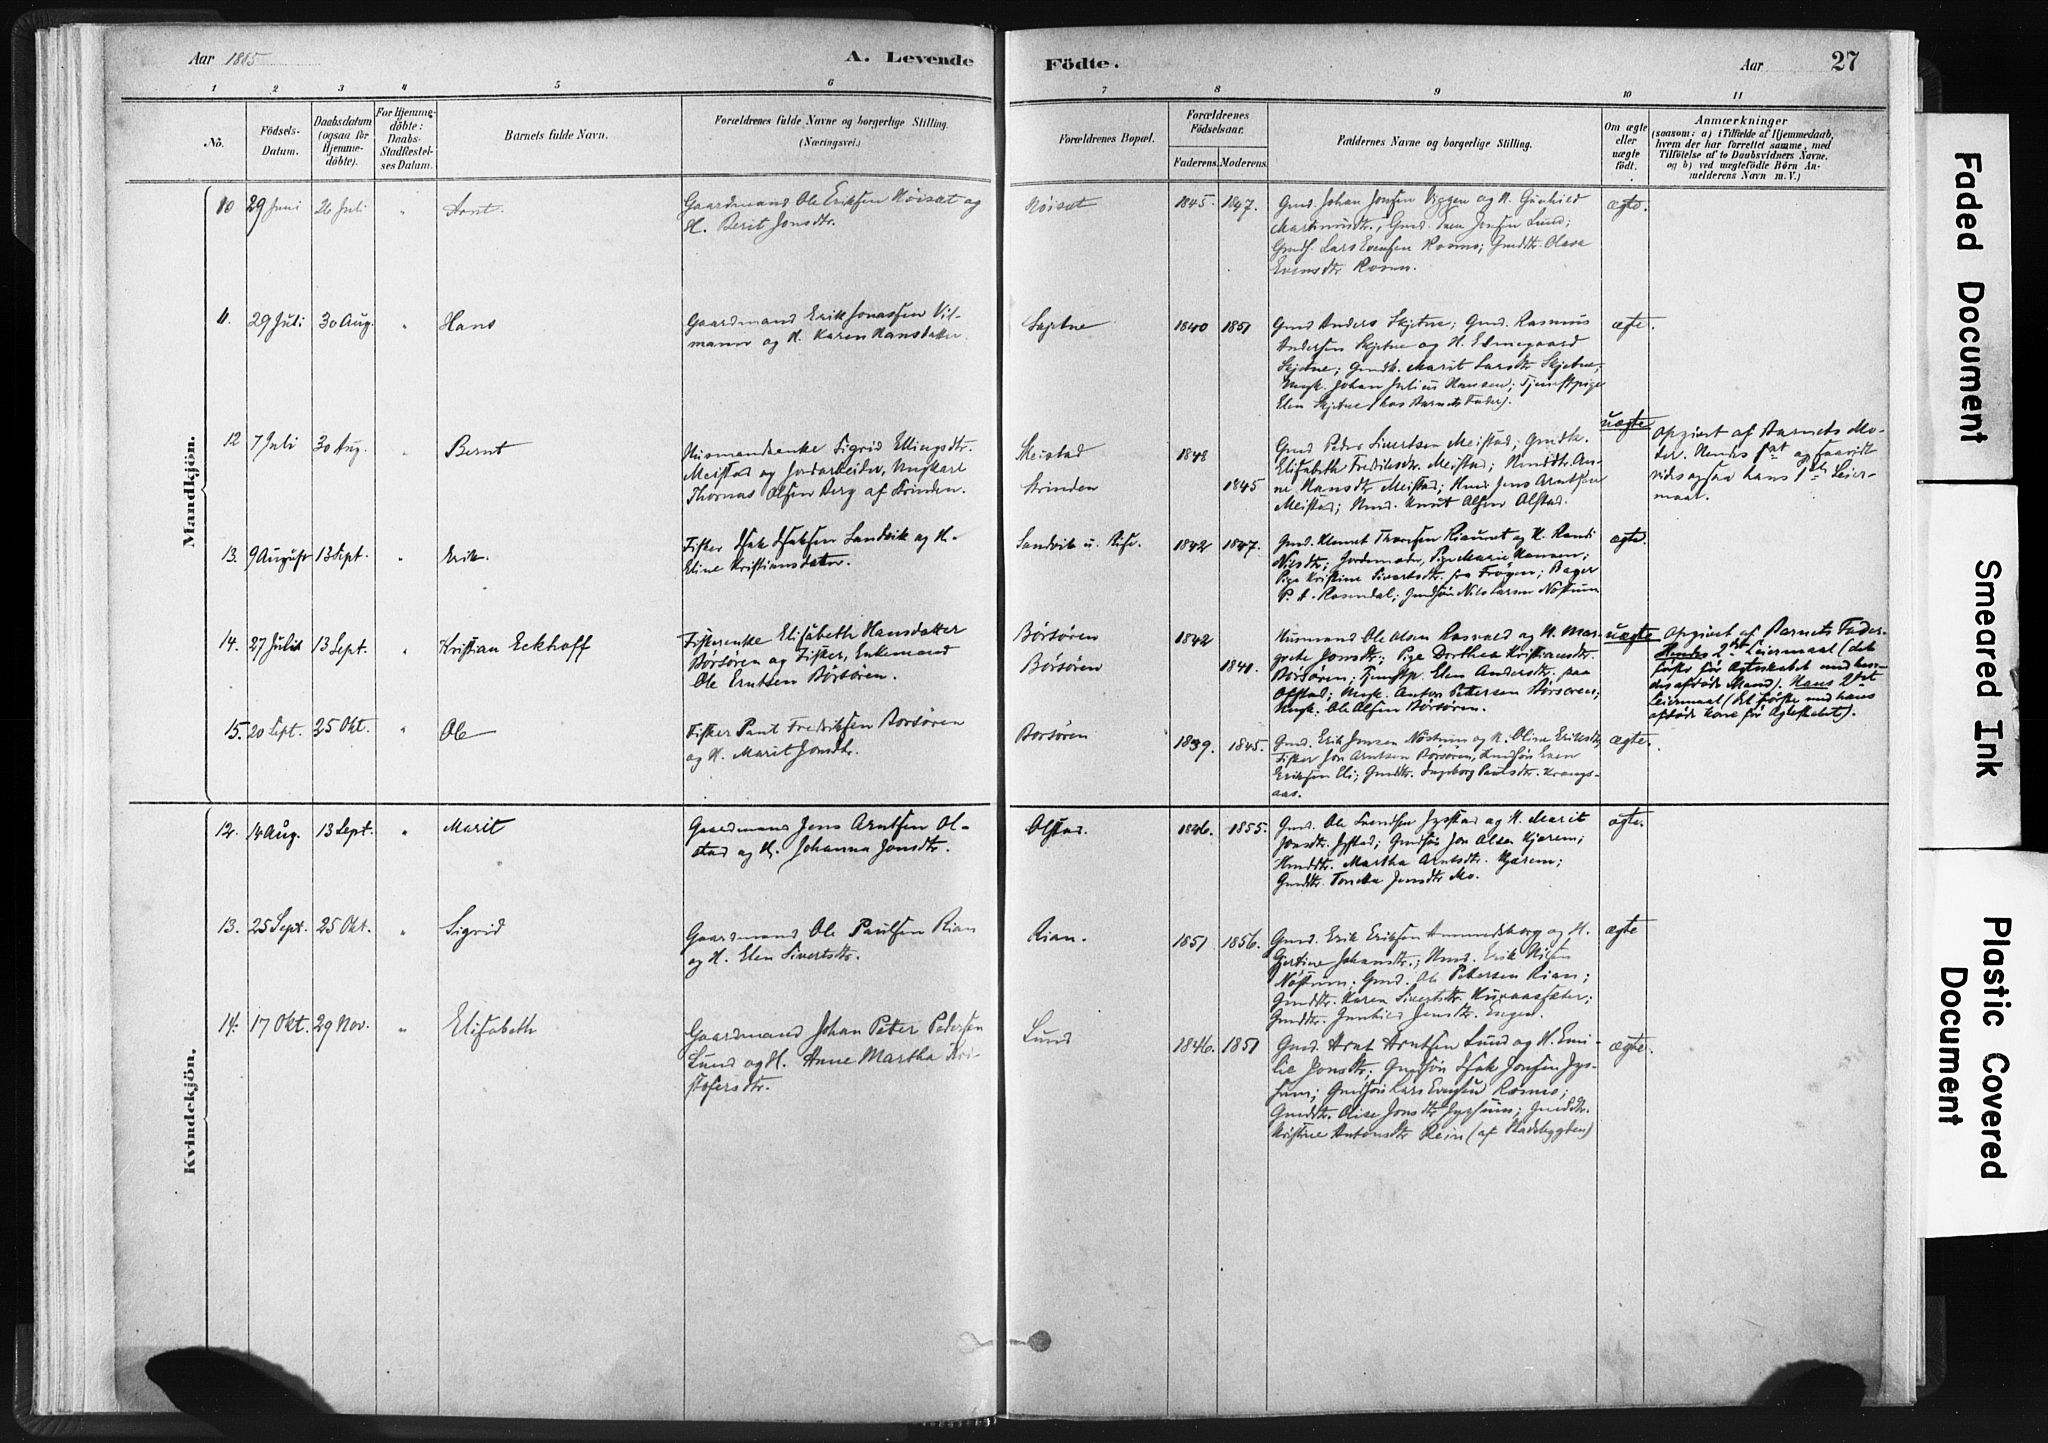 Aar 1885
A. Levende
Födte.
Aar
27
1 2 3 4 5 6 7 8 9 10 11
No.
Födsels-
Datum.
Daabsdatum
(ogsaa for
Hjemme-
döbte).
For Hjemme-
döbte:
Daabs-
Stadfæstel-
ses Datum.
Barnets fulde Navn.
Forældrenes fulde Navne og borgerlige Stilling.
(Næringsvei.)
Forældrenes Bopæl.
Forældrenes
Födselsaar.
Faderens. Moderens.
Faddernes Navne og borgerlige Stilling.
Om ægte
eller
uægte
födt.
Anmærkninger
(saasom: a) i Tilfælde af Hjemmedaab,
hvem der har forrettet samme, med
Tilföielse af to Daabsvidners Navne,
og b) ved uægtefödte Börn An-
melderens Navn m. V.)
Mandkjön.
10 29 Juni 26 Juli " Arnt.
Gaardmand Ole Eriksen Röisæt og
H. Berit Jonsdtr.
Röisæt
1845. 1847.
Gmd. Johan Jonsen Viggen og H. Gunhild
Martinusdtr.; Gmd. Iver Jonsen Lund;
Gmds. Lars Evensen Rosmo; Gmddtr. Olava
Evensdtr. Rosmo.
ægte.
11. 29 Juli 30 Aug. " Hans
Gaardmand Erik Jonassen Vil-
mann og H. Karen Hansdatter.
Skjetne
1840 1851
Gmd Anders Skjetne; Gmd. Rasmus
Andersen Skjetne og H. Elmegaard
Skjetne; Gmdk. Marit Larsdtr Skjetne;
Ungk. Johan Julius Hansen; Tjenestpige
Elen Skjetne (hos Barnets Fader).
ægte.
12 7 Juli 30 Aug. " Bernt
Husmandsenke Sigrid Ellingsdtr.
Meistad og Jordarbeider, Ungkarl
Thomas Olsen Berg af Strinden.
Meistad
Strinden
1848
1845
Gmd Peder Sivertsen Meistad; Gmdk.
Elisabeth Fredriksdtr. Meistad; Hmddtr. An-
ne Hansdtr Meistad; Hmd. Jens Arntsen
Meistad; Hmd. Knut Olsen Olstad.
uægte
Opgivet af Barnets Mo-
der. Hendes 1st og saavidt
vides ogsaa hans 1ste Leier-
maal.
13. 9 August 13 Sept. " Erik.
Fisker Isak Isaksen Sandvik og H.
Eline Kristiansdatter.
Sandvik u.
1842 1847.
Nilsdtr; Jordemoder, Pige Marie Hansen;
Pige Kristine Sivertsdtr. fra Fröyen; Bager
P. A. Rosendal; Gmdsön Nils Larsen Nöstum
ægte.
14. 27 Juli 13 Sept. " Kristian Eckhoff
Fiskerenke Elisabeth Hansdatter
Börsören og Fisker, Enkemand
Ole Erntsen Börsören.
Börsören
Börsören
1842
1841.
Husmand Ole Olsen Rosvold og H. Mar-
grete Jonsdtr.; Pige Dorthea Kristiansdtr.
Börsören; Tjenstp. Elen Andersdtr. paa
Ofstad; Ungk. Anton Pettersen Börsören;
Ungk. Ole Olsen Börsören.
uægte
Opgivet af Barnets Fader.
Hendes 2det Leiermaal (det
förste för Ægteskabet med hen-
des afdöde Mand). Hans 2det
Leiermaal (det förste med hans
afdöde Kone för Ægteskabet).
15. 20 Sept. 25 Okt. " Ole
Fisker Paul Fredriksen Börsören
og H. Marit Jonsdtr.
Börsören
1839. 1845.
Gmd. Erik Jensen Nöstum og H. Oline Eriksdtr,
Fisker Jon Arntsen Börsören, Gmdsön Even
Eriksen Eli; Gmddtr. Ingeborg Paulsdtr. Krangs-
aas.
ægte.
Kvindekjön.
12. 14 Aug. 13 Sept. " Marit
Gaardmand Jens Arntsen Ol-
stad og H. Johanna Jonsdtr.
Olstad.
1846. 1855.
Gmd. Ole Svendsen Gystad og H. Marit
Jonsdtr. Gystad; Gmdsön Jon Olsen Kjærem;
Hmddtr. Martha Arntsdtr. Kjærem;
Gmddtr. Jonsdtr Mo.
ægte.
13. 25 Sept. 25 Okt. " Sigrid
Gaardmand Ole Paulsen Rian
og H. Elen Sivertsdtr.
Rian.
1851. 1856.
Gmd. Erik Eriksen og H.
Gjertine Johansdtr.; Hmd. Erik Nilsen
Nöstum; Gmd. Ole Petersen Rian;
Gmddtr. Karen Sivertsdtr.
Gmddtr. Gunhild Jensdtr. Esgen.
ægte
14. 17 Okt. 29 Nov. " Elisabeth
Gaardmand Johan Peter Pedersen
Lund og H. Anne Martha Kri-
stofersdtr.
Lund
1846. 1851
Gmd. Arnt Arntsen Lund og H. Emi-
lie Jonsdtr; Gmdsön Isak Jonsen Jys-
sum; Gmdsön Lars Evensen Rosmo;
Gmddtr. Olise Jonsdtr Jyssum; Gmddtr.
Kristine Antonsdtr Rein (af Stadsbygden)
ægte.
Faded Document
Smeared Ink
Plastic Covered
Document